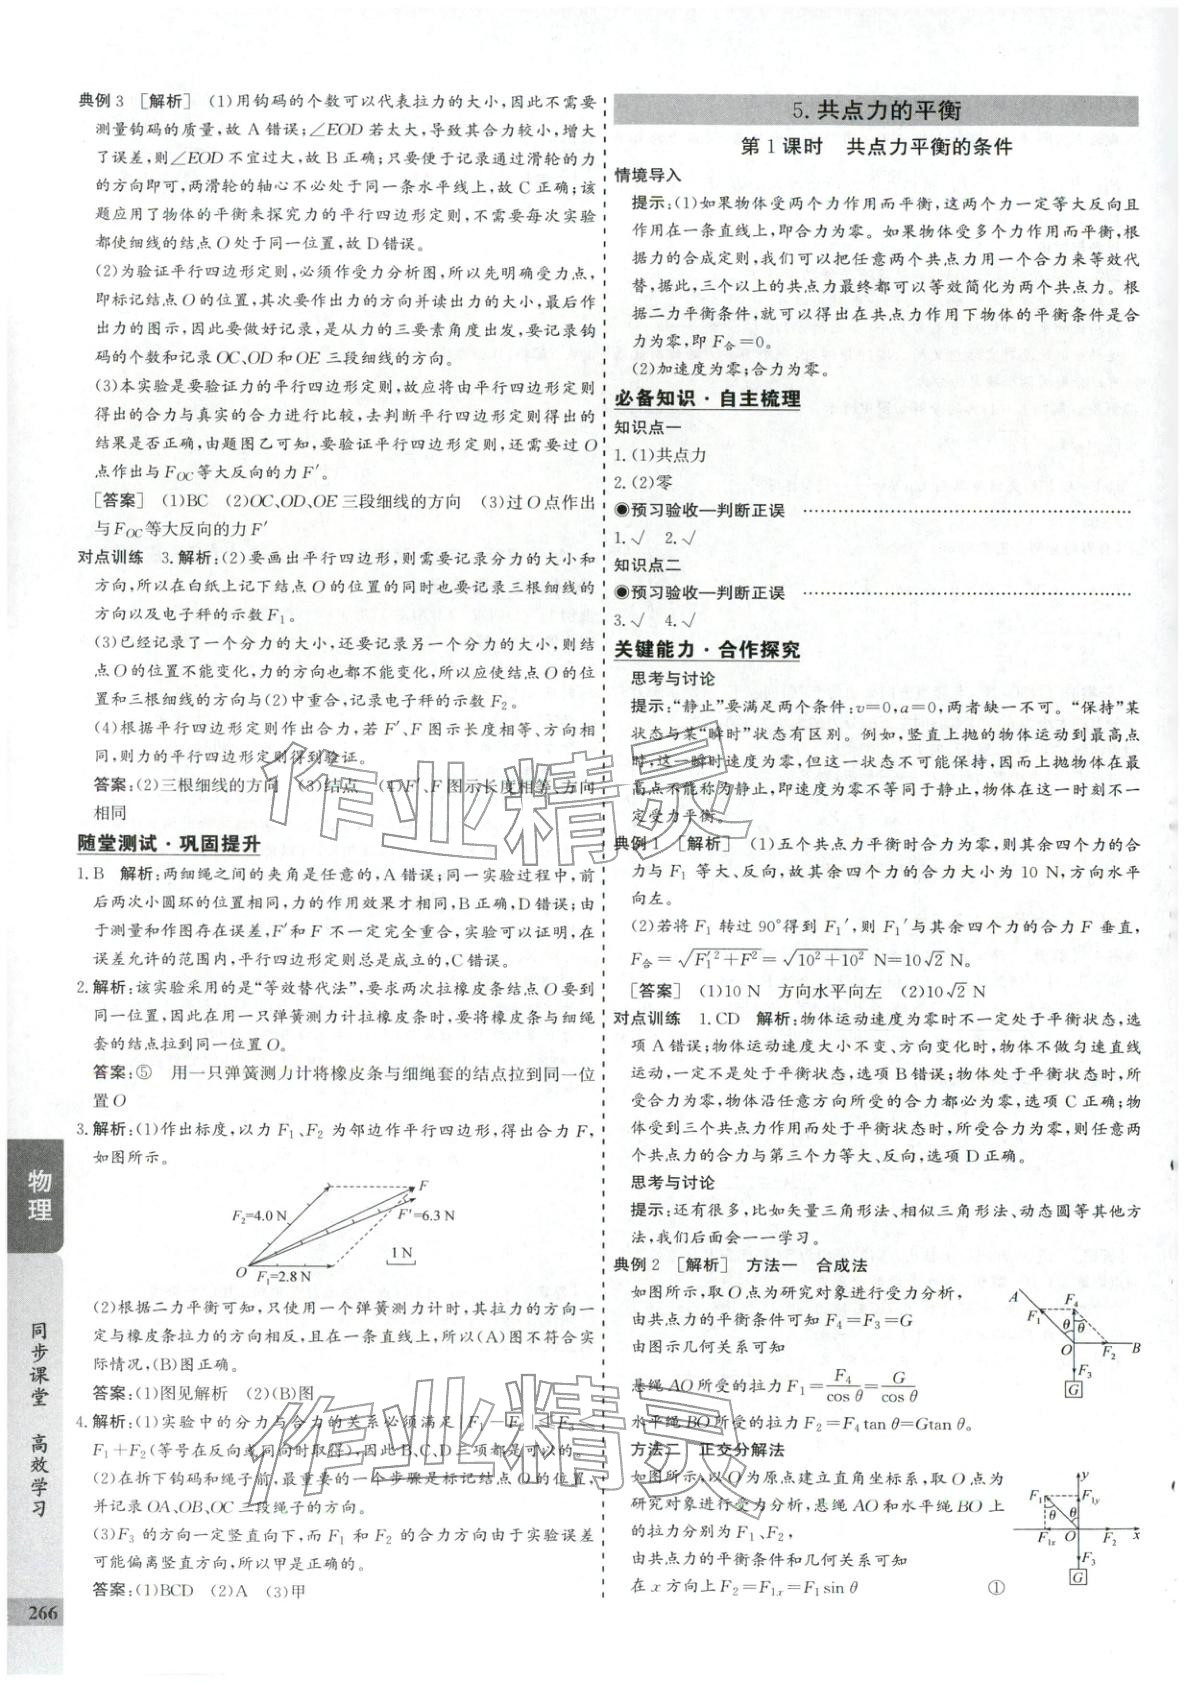 典例3 [解析] (1)用钩码的个数可以代表拉力的大小,因此不需要
测量钩码的质量,故A错误;∠EOD若太大,导致其合力较小,增大
了误差,则∠EOD不宜过大,故B正确;只要便于记录通过滑轮的力
的方向即可,两滑轮的轴心不必处于同一条水平线上,故C正确;该
题应用了物体的平衡来探究力的平行四边形定则,不需要每次实验
都使细线的结点O处于同一位置,故D错误。
(2)为验证平行四边形定则,必须作受力分析图,所以先明确受力点,
即标记结点O的位置,其次要作出力的方向并读出力的大小,最后作
出力的图示,因此要做好记录,是从力的三要素角度出发,要记录钩
码的个数和记录OC、OD和OE三段细线的方向。
(3)本实验是要验证力的平行四边形定则,故应将由平行四边形定则
得出的合力与真实的合力进行比较,去判断平行四边形定则得出的
结果是否正确,由题图乙可知,要验证平行四边形定则,还需要过O
点作出与F_OC等大反向的力F′。
[答案] (1)BC (2)OC、OD、OE三段细线的方向 (3)过O点作出
与F_OC等大反向的力F′
对点训练 3.解析:(2)要画出平行四边形,则需要记录分力的大小和
方向,所以在白纸上记下结点O的位置的同时也要记录三根细线的
方向以及电子秤的示数F₁。
(3)已经记录了一个分力的大小,还要记录另一个分力的大小,则结
点O的位置不能变化,力的方向也都不能变化,所以应使结点O的位
置和三根细线的方向与(2)中重合,记录电子秤的示数F₂。
(4)根据平行四边形定则作出合力,若F′、F图示长度相等、方向相
同,则力的平行四边形定则得到验证。
答案:(2)三根细线的方向 (3)结点 (4)F′、F图示长度相等、方向
相同
随堂测试·巩固提升
1.B 解析:两细绳之间的夹角是任意的,A错误;同一实验过程中,前
后两次小圆环的位置相同,力的作用效果才相同,B正确,D错误;由
于测量和作图存在误差,F′和F不一定完全重合,实验可以证明,在
误差允许的范围内,平行四边形定则总是成立的,C错误。
2.解析:该实验采用的是“等效替代法”,要求两次拉橡皮条结点O要到
同一位置,因此在用一只弹簧测力计拉橡皮条时,要将橡皮条与细绳
套的结点拉到同一位置O。
答案:⑤ 用一只弹簧测力计将橡皮条与细绳套的结点拉到同一位
置O
3.解析:(1)作出标度,以力F₁、F₂为邻边作平行四边形,得出合力F,
如图所示。
F
F₂=4.0 N
F′=6.3 N
1 N
O
F₁=2.8 N
(2)根据二力平衡可知,只使用一个弹簧测力计时,其拉力的方向一
定与橡皮条拉力的方向相反,且在一条直线上,所以(A)图不符合实
际情况,(B)图正确。
答案:(1)图见解析 (2)(B)图
4.解析:(1)实验中的分力与合力的关系必须满足|F₁-F₂|≤F₃≤
F₁+F₂(等号在反向或同向时取得),因此B、C、D三项都是可以的。
(2)在拆下钩码和绳子前,最重要的一个步骤是标记结点O的位置,
并记录OA、OB、OC三段绳子的方向。
(3)F₃的方向一定竖直向下,而F₁和F₂的合力方向由于实验误差
可能偏离竖直方向,所以甲是正确的。
答案:(1)BCD (2)A (3)甲
5.共点力的平衡
第1课时 共点力平衡的条件
情境导入
提示:(1)如果物体受两个力作用而平衡,这两个力一定等大反向且
作用在一条直线上,即合力为零。如果物体受多个力作用而平衡,根
据力的合成定则,我们可以把任意两个共点力用一个合力来等效代
替,据此,三个以上的共点力最终都可以等效简化为两个共点力。根
据二力平衡条件,就可以得出在共点力作用下物体的平衡条件是合
力为零,即F合=0。
(2)加速度为零;合力为零。
必备知识·自主梳理
知识点一
1.(1)共点力
2.(2)零
◉预习验收—判断正误
1.√ 2.√
知识点二
◉预习验收—判断正误
3.√ 4.√
关键能力·合作探究
思考与讨论
提示:“静止”要满足两个条件:v=0,a=0,两者缺一不可。“保持”某
状态与某“瞬时”状态有区别。例如,竖直上抛的物体运动到最高点
时,这一瞬时速度为零,但这一状态不可能保持,因而上抛物体在最
高点不能称为静止,即速度为零不等同于静止,物体在这一时刻不一
定受力平衡。
典例1 [解析] (1)五个共点力平衡时合力为零,则其余四个力的合
力与F₁等大、反向,故其余四个力的合力大小为10 N,方向水平
向左。
(2)若将F₁转过90°得到F₁′,则F₁′与其余四个力的合力F垂直,
F合=√(F₁′²+F²)=√(10²+10²) N=10√2 N。
[答案] (1)10 N 方向水平向左 (2)10√2 N
对点训练 1.CD 解析:物体运动速度为零时不一定处于平衡状态,选
项A错误;物体运动速度大小不变、方向变化时,物体不做匀速直线
运动,一定不是处于平衡状态,选项B错误;物体处于平衡状态时,所
受合力为零,物体沿任意方向所受的合力都必为零,选项C正确;物
体受到三个共点力作用而处于平衡状态时,所受合力为零,则任意两
个共点力的合力与第三个力等大、反向,选项D正确。
思考与讨论
提示:还有很多,比如矢量三角形法、相似三角形法、动态圆等其他方
法,我们后面会一一学习。
典例2 [解析] 方法一 合成法
如图所示,取O点为研究对象进行受力分析,
由共点力的平衡条件可知F₄=F₃=G
由图示几何关系可知
悬绳AO所受的拉力F₁=F₄/cos θ=G/cos θ
水平绳BO所受的拉力F₂=F₄tan θ=Gtan θ。
A F₄ F₁ θ θ O F₂ B F₃ G
方法二 正交分解法
如图所示,以O为原点建立直角坐标系,取O点为
研究对象进行受力分析,悬绳AO和水平绳BO上
的拉力分别为F₁、F₂,
由共点力的平衡条件和几何关系可知
在x方向上F₂=F₁ₓ=F₁sin θ ①
y F₁ F₁y θ θ O F₁ₓ F₂ x F₃ G
物理
同步课堂 高效学习
266
作业精灵
作业精灵